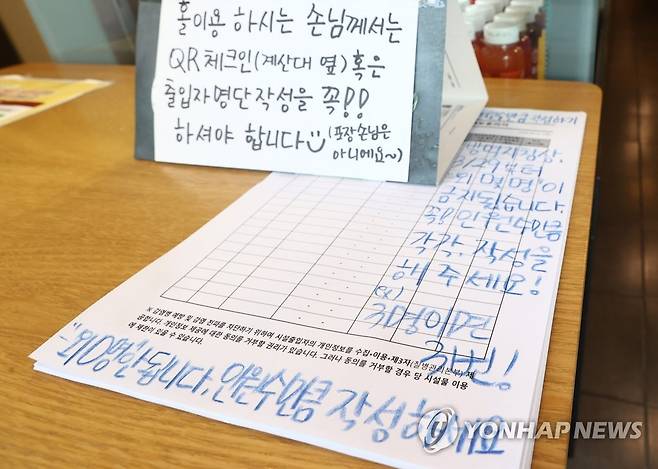 홀이용 하시는 손님께서는
QR체크인(계산대 옆)혹은
출입자명단작성을 꼭!!
하셔야 합니다 (포장손님은
아니에요~)
작성하기
3/29부터
"외 몇명"이
금지됩니다.
꼭! 인원수만큼
각각, 작성을
해주세요!
ex)
3명이면
3번!
※ 감염병 예방 및 감염 전파를 차단하기 위하여 시설출입자의 개인정보를 수집·이용·제3자(질병관리본부) 제
공합니다. 개인정보 제공에 대한 동의를 거부할 권리가 있습니다. 그러나 동의를 거부할 경우 당 시설물 이용
에 제한이 있을 수 있습니다.
외 0명 안됩니다, 인원수만큼 작성하세요
YONHAP NEWS